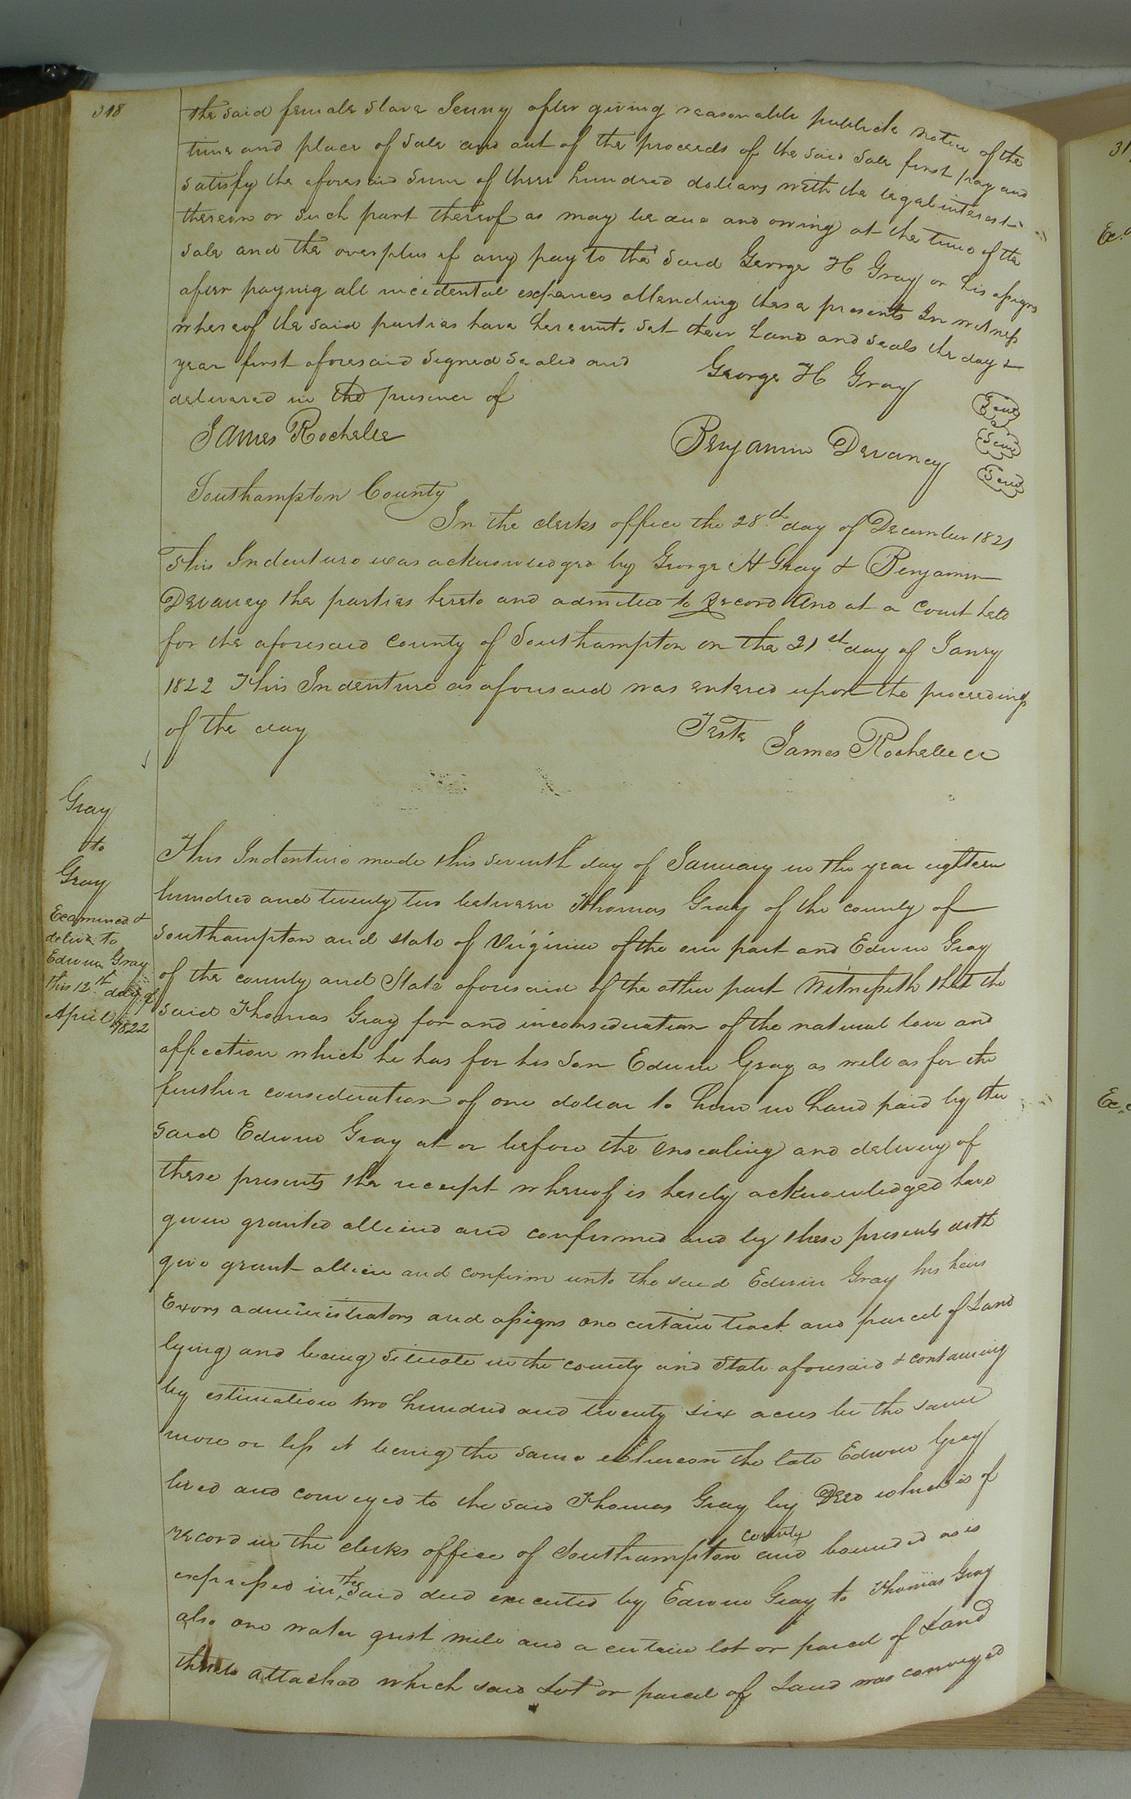 318
the said female slave Jenny after giving reasonable publick notice of the
time and place of sale and out of the proceeds of the said sale first pay and
satisfy the aforesaid sum of three hundred dollars with the legal interest
thereon or such part thereof as may be due and owing at the time of the
sale and the overplus if any pay to the said George H Gray or his assigns
after paying all incidental expences attending these presents In witness
whereof the said parties have hereunto set their hand and seals the day &
year first aforesaid signed sealed and
delivered in the presence of
George H Gray
Seal
James Rochelle
Benjamin Devaney
Seal
Seal
Southampton County
In the clerks office the 28th day of December 1821
This Indenture was acknowledged by George H Gray & Benjamin
Devaney the parties hereto and admitted to Record And at a Court held
for the aforesaid county of Southampton on the 21st day of Jany
1822 This Indenture as aforesaid was entered upon the proceedings
of the day
Teste
James Rochelle cc
Gray
to
Gray
Examined &
deliv'd to
Edwin Gray
this 12th day of
April 1822
This Indenture made this seventh day of January in the year eighteen
hundred and twenty two between Thomas Gray of the county of
Southampton and state of Virginia of the one part and Edwin Gray
of the county and State aforesaid of the other part Witnesseth that the
said Thomas Gray for and inconsideration of the natural love and
affection which he has for his son Edwin Gray as well as for the
further consideration of one dollar to him in hand paid by the
said Edwin Gray at or before the ensealing and delivery of
these presents the receipt whereof is hereby acknowledged have
given granted alliend and confirmed and by these presents doth
give grant allien and confirm unto the said Edwin Gray his heirs
Exors administrators and assigns one certain tract and parcel of Land
lying and being situate in the county and State aforesaid & containing
by estimation two hundred and twenty six acres be the same
more or less it being the same whereon the late Edwin Gray
lived and conveyed to the said Thomas Gray by Deed which is of
record in the clerks office of Southampton county and bounded as is
expressed in the said deed executed by Edwin Gray to Thomas Gray
also one water grist mill and a certain lot or parcel of Land
thereto attached which said Lot or parcel of Land was conveyed
31
Ex.
Ex.